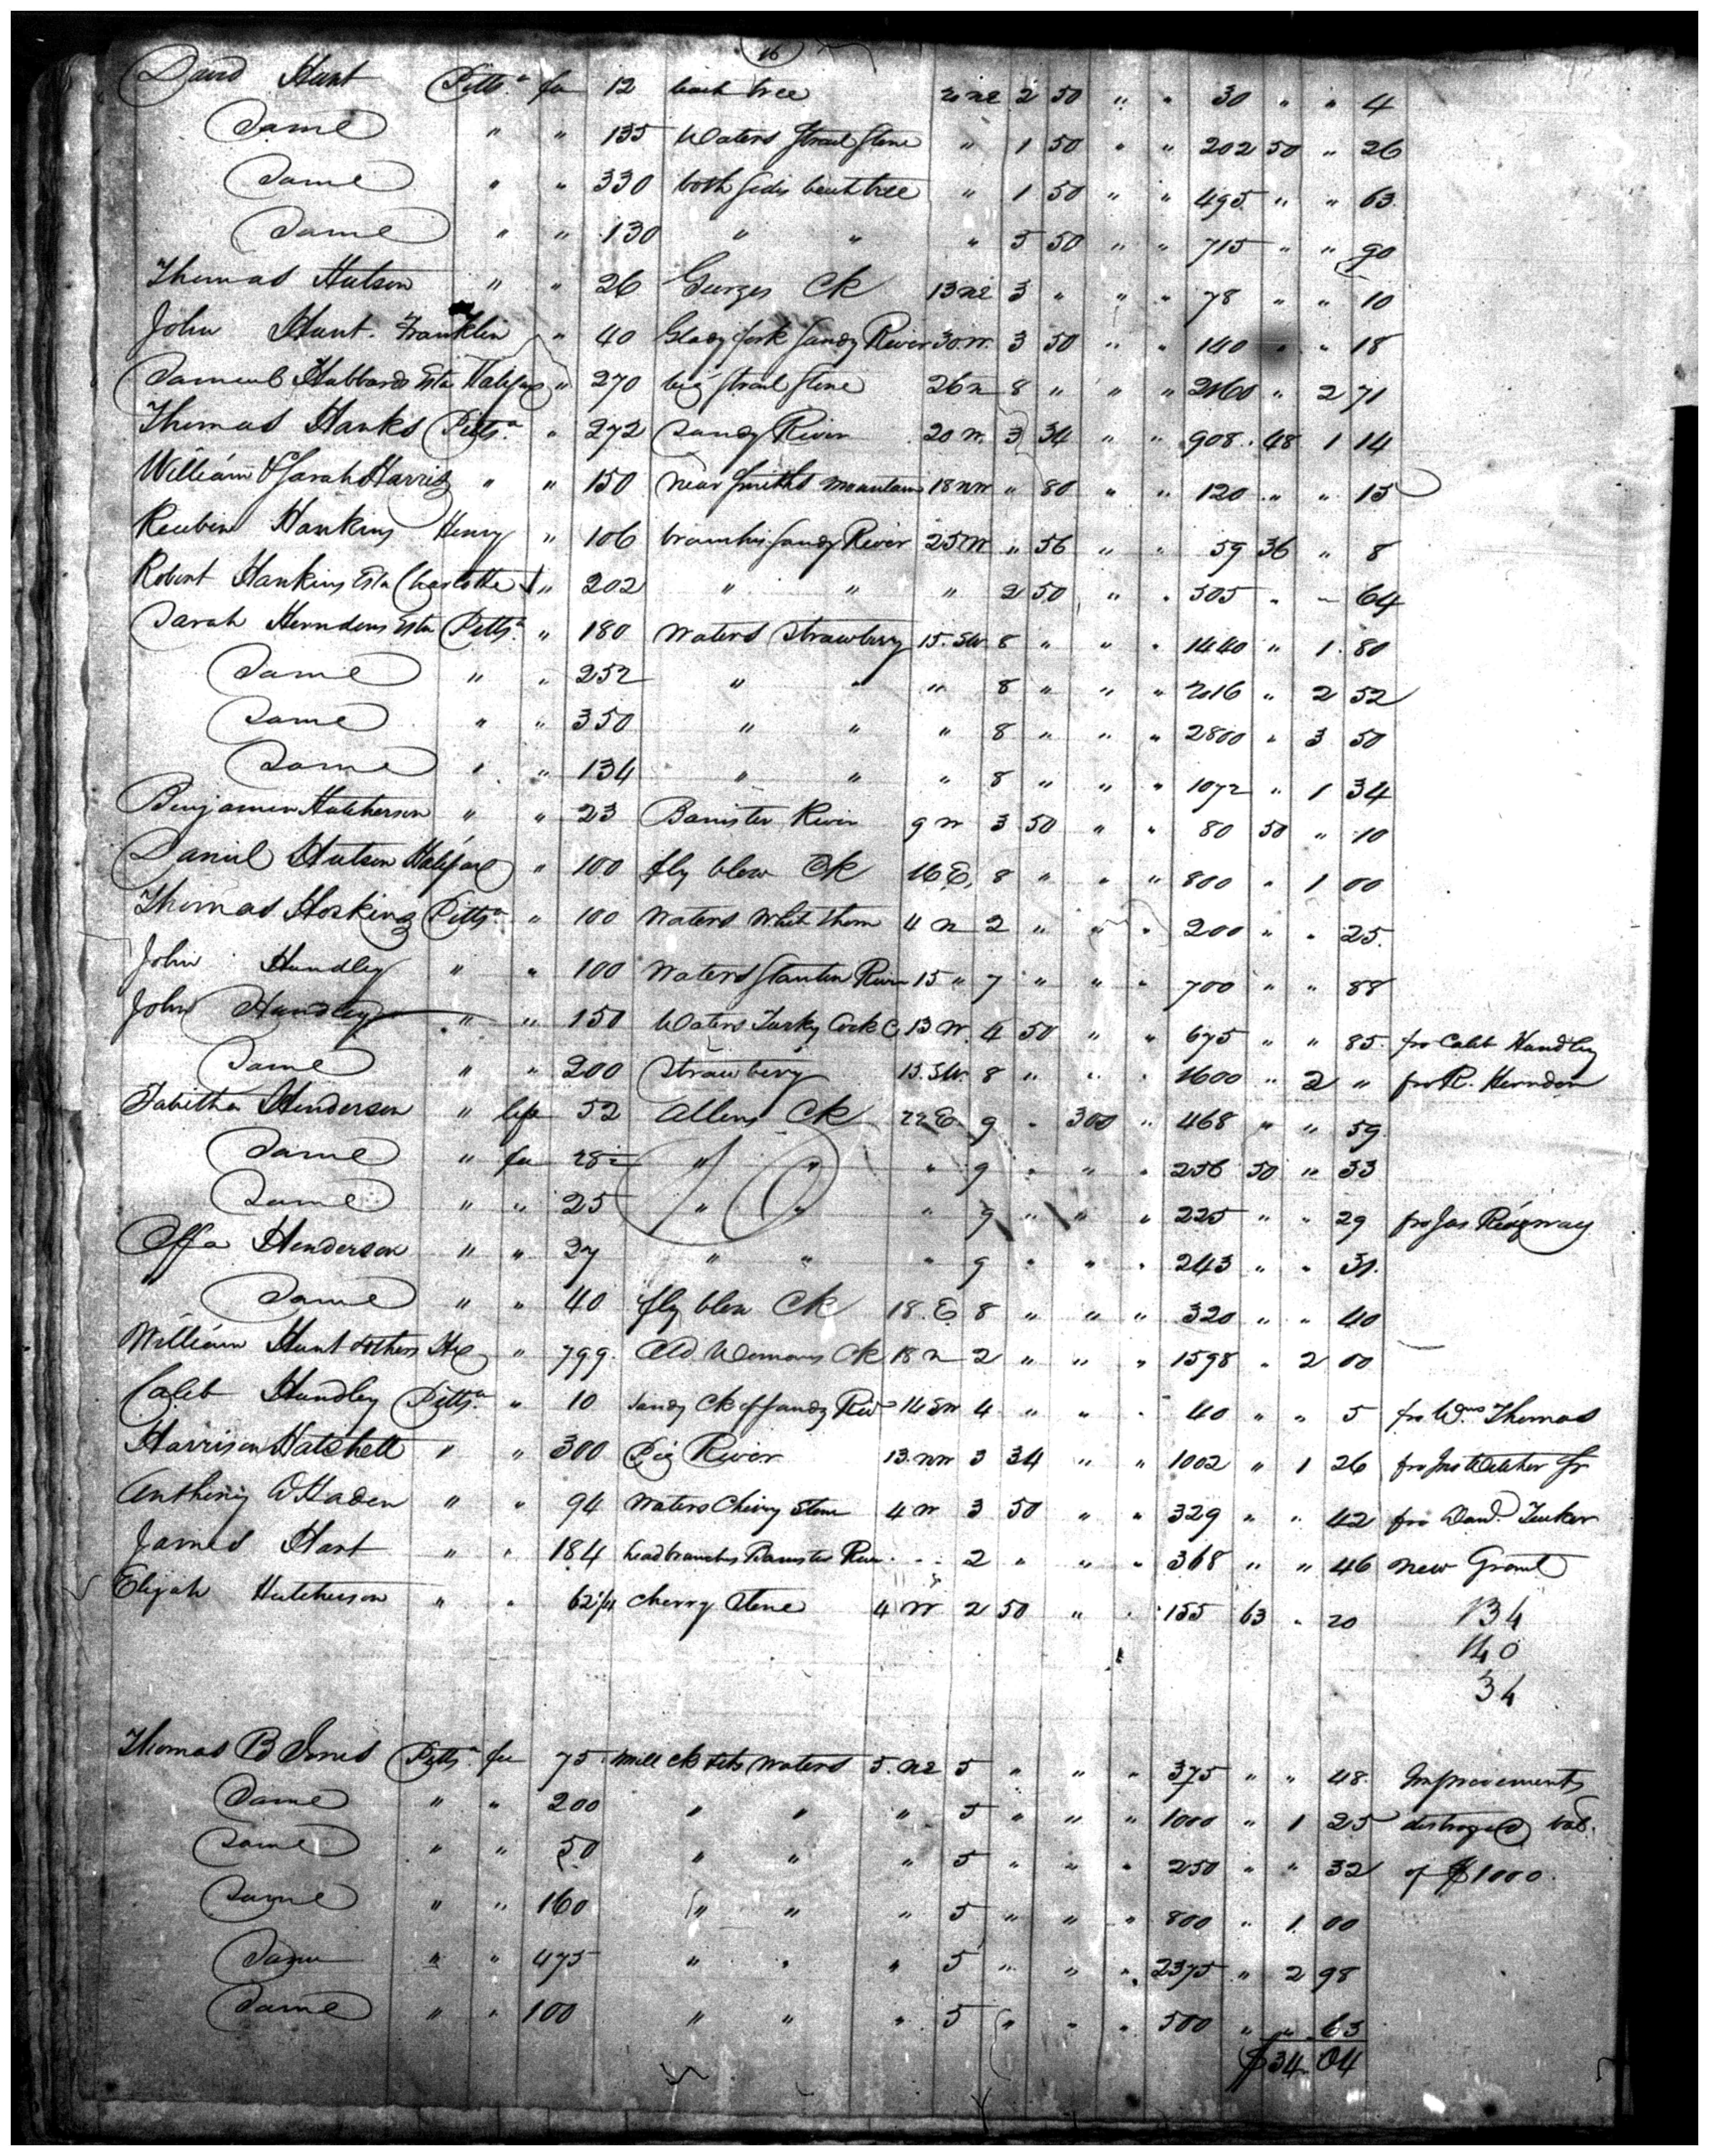 16
David Hunt Pittsa fee 12 bent tree 20 NE 2 50 " " 30 " " 4
Same " " 135 Waters Strait Stone " 1 50 " " 202 50 " 26
Same " " 330 both sides bent tree " 1 50 " " 495 " " 63
Same " " 130 " " " 5 50 " " 715 " " 90
Thomas Hutson " " 26 Georges Ck 13 NE 3 " " " 78 " " 10
John Hunt Franklin " 40 Glady fork Sandy River 30 W. 3 50 " " 140 " " 18
Samuel Hubbards Esta Halifax " 270 big Strait Stone 26 N 8 " " " 2160 " 2 71
Thomas Hanks Pittsa " 272 Sandy River 20 W. 3 34 " " 908 48 1 14
William & Sarah Harris " " 150 Near Smiths Mountain 18 NW " 80 " " 120 " " 15
Reubin Hankins Henry " 106 branches Sandy River 25 W " 56 " " 59 36 " 8
Robert Hankins Esta Charlotte " 202 " " " 2 50 " " 505 " " 64
Sarah Herndons Esta Pittsa " 180 Waters Strawbery 15. SW 8 " " " 1440 " 1 80
Same " " 252 " " " 8 " " " 2016 " 2 52
Same " " 350 " " " 8 " " " 2800 " 3 50
Same " " 134 " " " 8 " " " 1072 " 1 34
Benjamin Hutcherson " " 23 Banister River 9 W 3 50 " " 80 50 " 10
Daniel Hutson Halifax " 100 fly blow Ck 16 E. 8 " " " 800 " 1 00
Thomas Hosking Pittsa " 100 Waters Whit thorn 4 N 2 " " " 200 " " 25
John Hundley " " 100 Waters Stanton River 15 " 7 " " " 700 " " 88
John Hundley " " 150 Waters Turky Cock C 13 W. 4 50 " " 675 " " 85 fro Caleb Hundley
Same " " 200 Strawbery 15. SW. 8 " " " 1600 " 2 " fro R. Herndon
Tabitha Henderson " life 52 Allens Ck 22 E. 9 " 300 " 468 " " 59
Same " fee 28½ " " " 9 " " " 256 50 " 33
Same " " 25 " " " 9 " " " 225 " " 29 fro Jas Ridgway
Offa Henderson " " 27 " " " 9 " " " 243 " " 31
Same " " 40 fly blow Ck 18. E 8 " " " 320 " " 40
William Hunt & others Hx " 799 Old Womans Ck 18 N 2 " " " 1598 " 2 00
Caleb Hundley Pittsa " 10 Sandy Ck of Sandy Rivr 14 SW 4 " " " 40 " " 5 fro Wms Thomas
Harrison Hatchett " " 300 Pig River 13. NW 3 34 " " 1002 " 1 26
Anthony W Haden " " 94 Waters Cherry Stone 4 W 3 50 " " 329 " " 42 fro Dand. Tucker
James Hart " " 184 head branches Banister River " " 2 " " " 368 " " 46 New Grant
Elijah Hutcherson " " 62¼ Cherry Stone 4 W 2 50 " " 155 63 " 20 134
140
34
Thomas B Jones Pittsa fee 75 Mill Ck & its Waters 5. NE 5 " " " 375 " " 48 Improvements
Same " " 200 " " " 5 " " " 1000 " 1 25 destroyed val.
Same " " 50 " " " 5 " " " 250 " " 32 of $1000
Same " " 160 " " " 5 " " " 800 " 1 00
Same " " 475 " " " 5 " " " 2375 " 2 98
Same " " 100 " " " 5 " " " 500 " " 63
$34 04